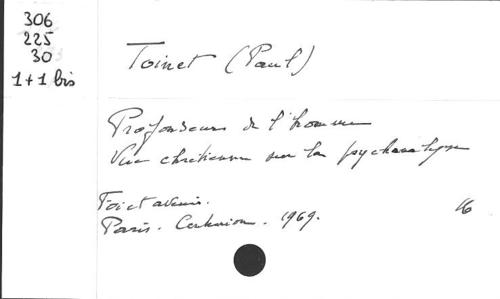 306
225
30
1+1 bis
Toinet (Paul)
Profondeurs de l'homme
Vue chrétienne sur la psychanalyse
Foi et avenir.
Paris. Centurion. 1969.